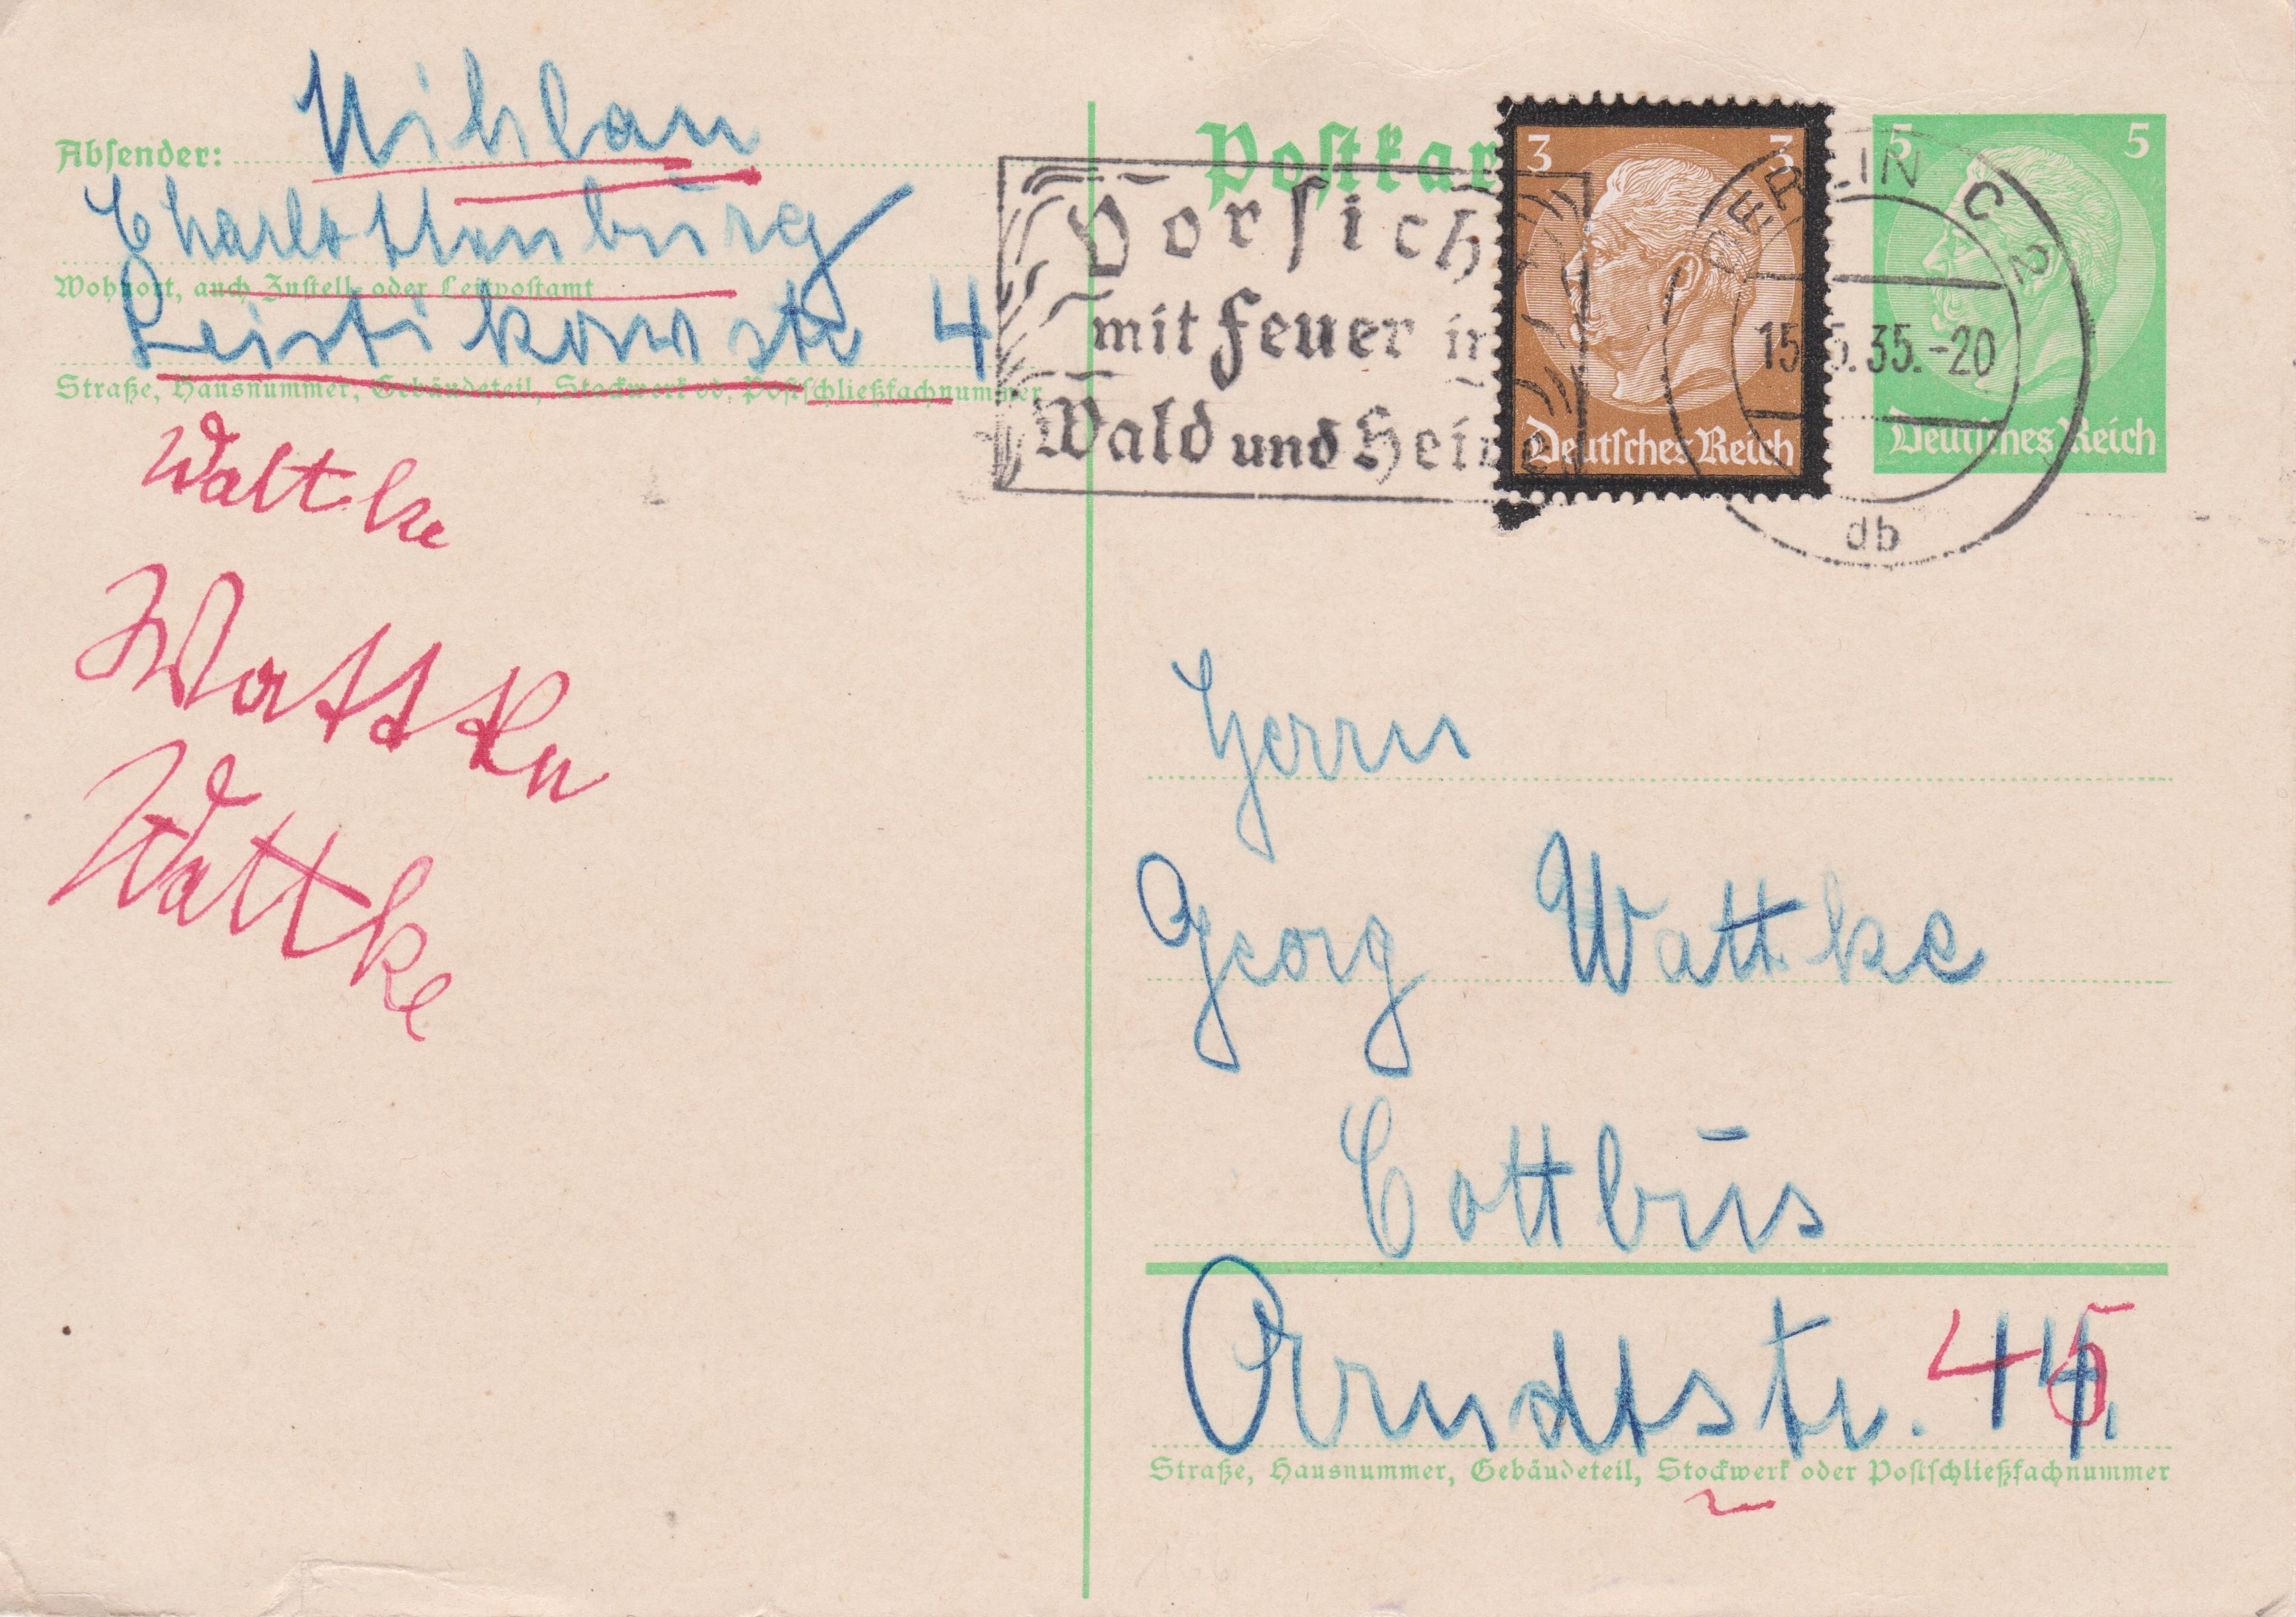 Absender:
Charlottenburg
Wohnort, auch Zustell- oder Leitpostamt
Leistikowstr 4
Straße, Hausnummer, Gebäudeteil, Stockwerk od. Postschließfachnummer
Wattke
Wattke
Wattke
Postkar
Vorsich
mit Feuer in
Wald und Heide
3 3
Deutsches Reich
5 5
Deutsches Reich
BERLIN C 2
15.5.35.-20
db
Herrn
Georg Wattke
Cottbus
Arndtstr. 45
Straße, Hausnummer, Gebäudeteil, Stockwerk oder Postschließfachnummer